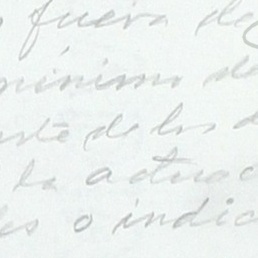 fuera de
minimo de
de los
la actuac
o indic